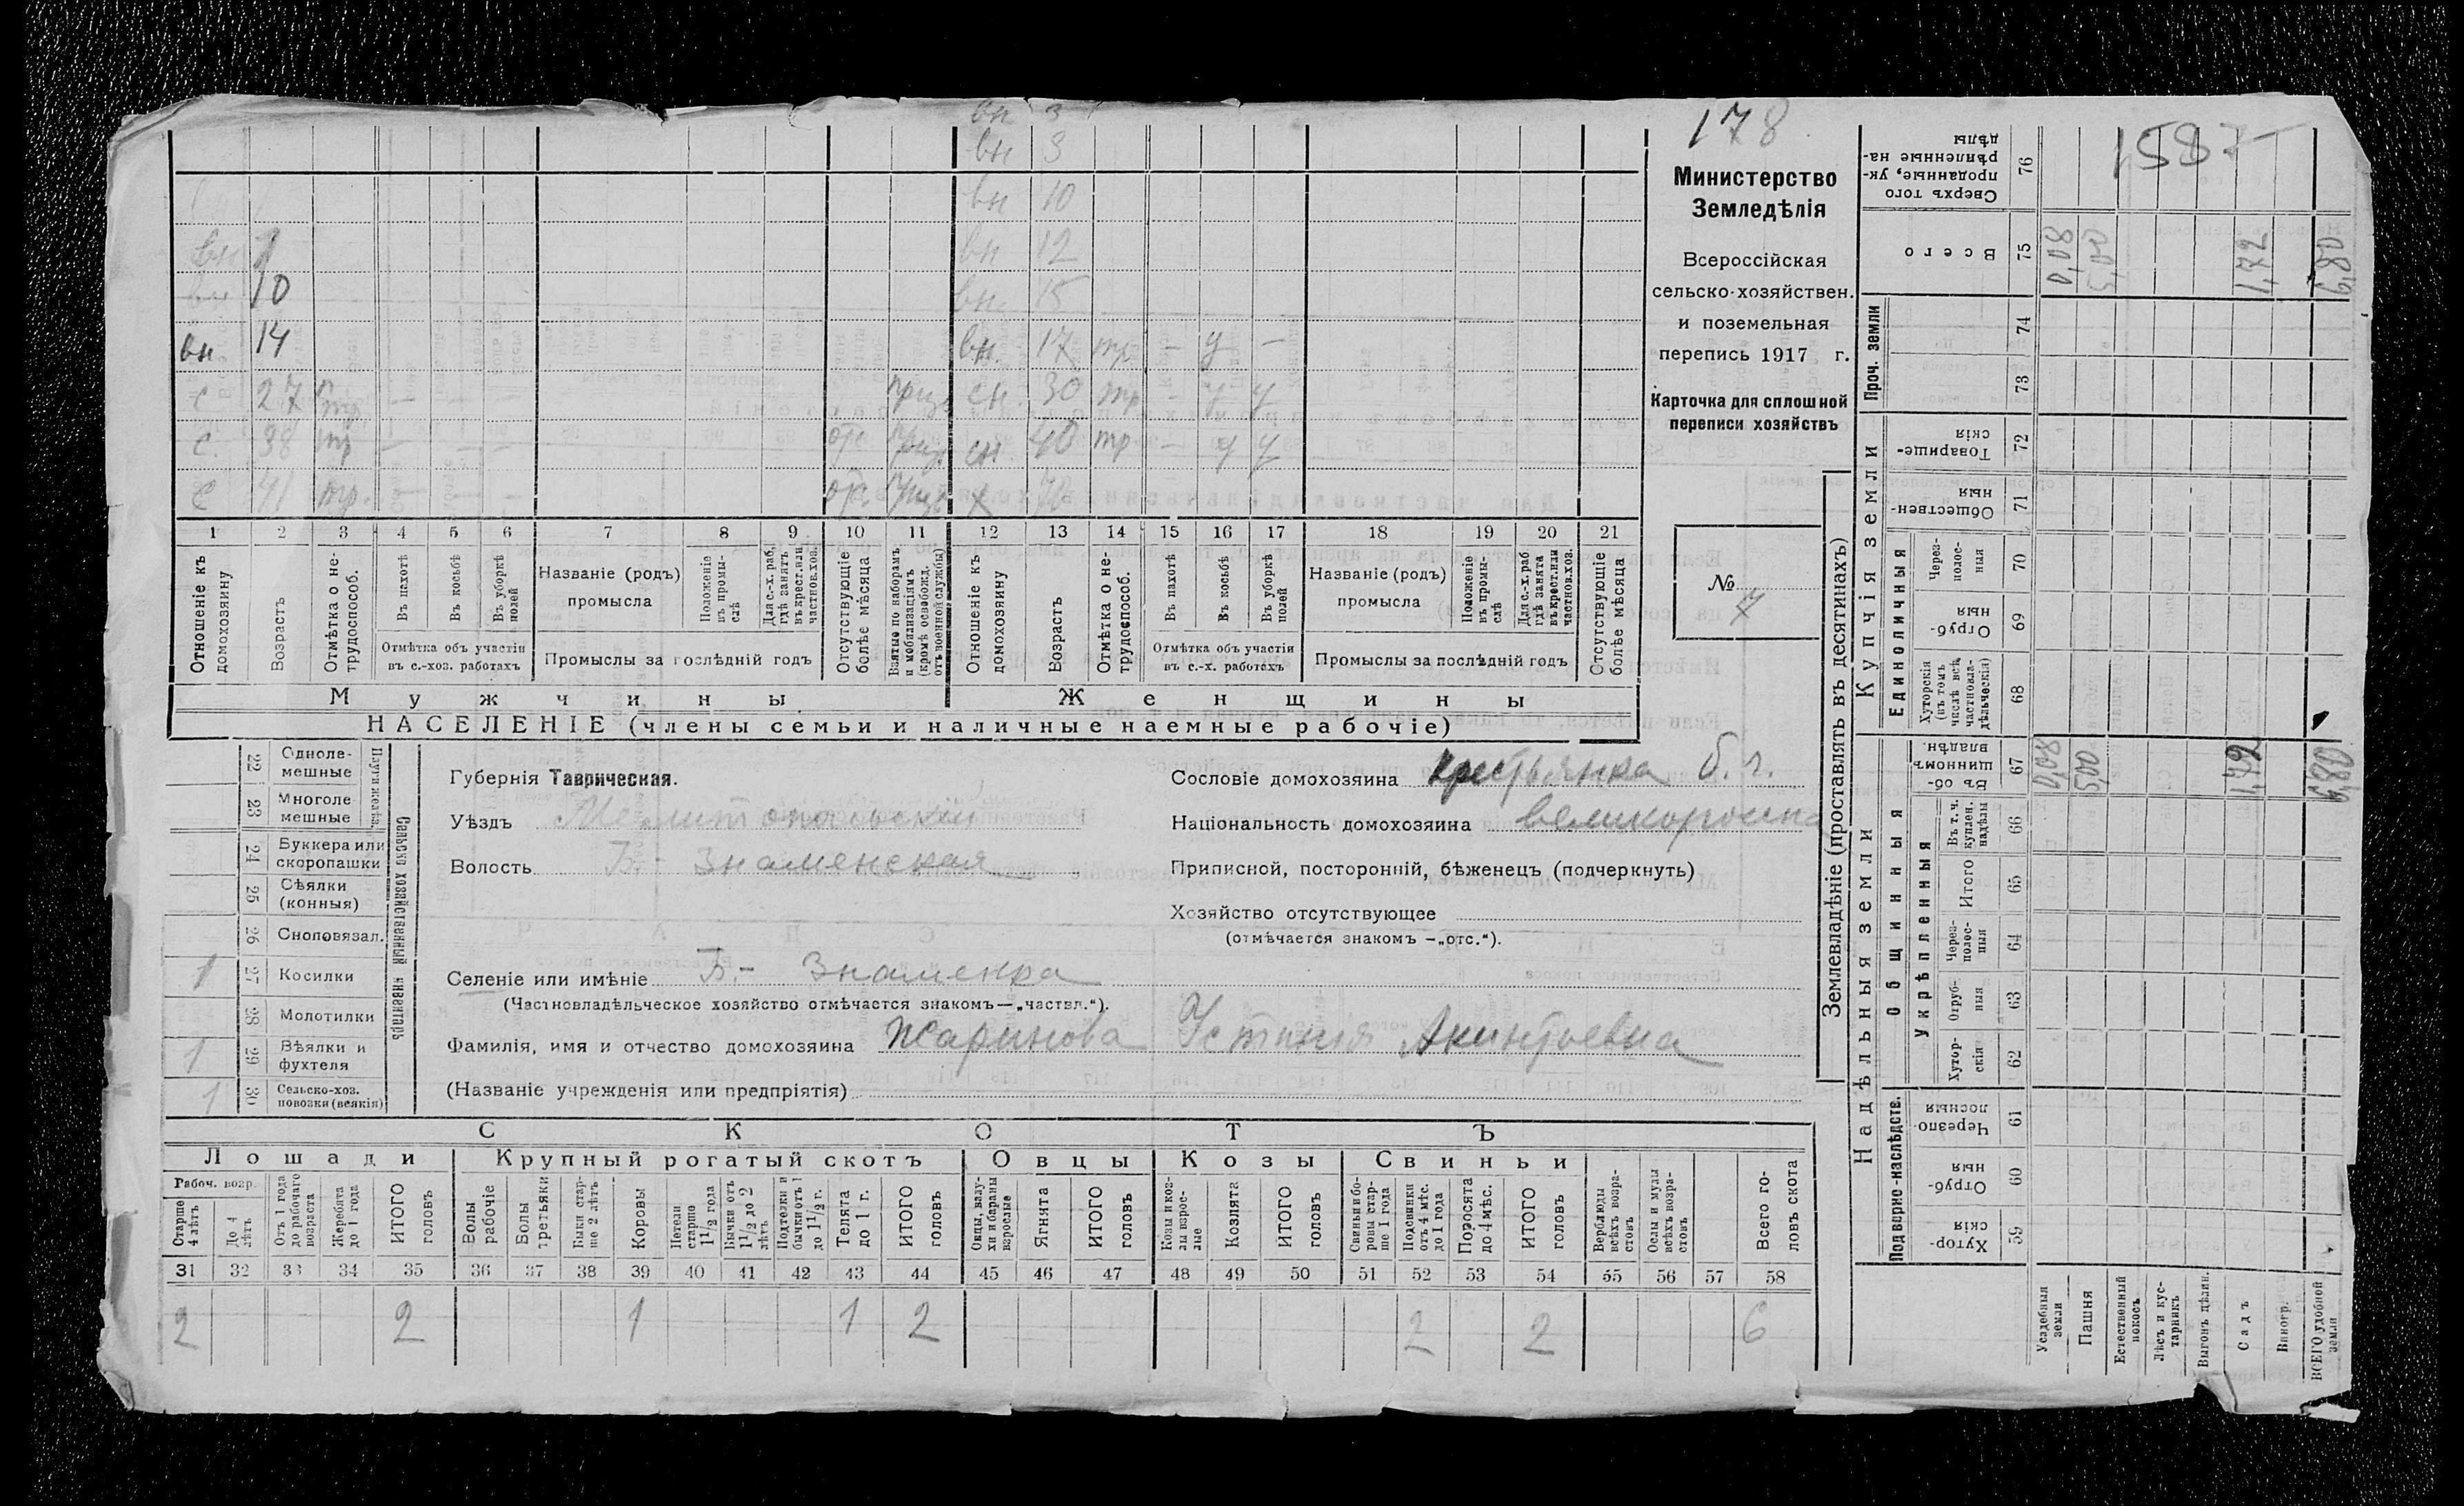 178
1587
Министерство
Земледѣлія
Всероссійская
сельско-хозяйствен.
и поземельная
перепись 1917 г.
Карточка для сплошной
переписи хозяйствъ
№ 7
вн 3
вн 3
вн 10
вн 7 вн 12
вн 10 вн. 15
вн 14 вн. 17 тр - у -
с 27 тр - - - сн. 30 тр - у у
с. 38 тр - - - отс сн. 40 тр - у у
с 41 тр. - - - отс х 70
1 2 3 4 5 6 7 8 9 10 11 12 13 14 15 16 17 18 19 20 21
Отношеніе къ домохозяину
Возрастъ
Отмѣтка о не-трудоспособ.
Въ пахотѣ
Въ косьбѣ
Въ уборкѣ полей
Отмѣтка объ участіи въ с.-хоз. работахъ
Названіе (родъ) промысла
Положеніе въ промы-слѣ
Для с.-х. раб. гдѣ занятъ въ крест. или частнов. хоз.
Промыслы за послѣдній годъ
Отсутствующіе болѣе мѣсяца
Взятые по наборамъ и мобилизаціямъ (кромѣ освобожд. отъ военной службы)
Отношеніе къ домохозяину
Возрастъ
Отмѣтка о не-трудоспособ.
Въ пахотѣ
Въ косьбѣ
Въ уборкѣ полей
Отмѣтка объ участіи въ с.-х. работахъ
Названіе (родъ) промысла
Положеніе въ промы-слѣ
Для с.-х. раб гдѣ занята въ крест. или частнов. хоз.
Промыслы за послѣдній годъ
Отсутствующіе болѣе мѣсяца
Мужчины Женщины
НАСЕЛЕНІЕ (члены семьи и наличные наемные рабочіе)
Сельско хозяйственный инвентарь
Плуги желѣз.
22 Одноле-мешные
23 Многоле-мешные
24 Буккера или скоропашки
25 Сѣялки (конныя)
26 Сноповязал.
1 27 Косилки
28 Молотилки
1 29 Вѣялки и фухтеля
1 30 Сельско-хоз. повозки (всякія)
Губернія Таврическая.
Уѣздъ Мелитопольскій
Волость Б.- Знаменская
Селеніе или имѣніе Б.- Знаменка
(Частновладѣльческое хозяйство отмѣчается знакомъ—„частвл.“).
Фамилія, имя и отчество домохозяина Жаринова Устинія Акинтьевна
(Названіе учрежденія или предпріятія)
Сословіе домохозяина крестьянка б. г.
Національность домохозяина великоросска
Приписной, посторонній, бѣженецъ (подчеркнуть)
Хозяйство отсутствующее
(отмѣчается знакомъ —„отс.“).
СКОТЪ
Лошади Крупный рогатый скотъ Овцы Козы Свиньи
Рабоч. возр.
Старше 4 лѣтъ
До 4 лѣтъ
Отъ 1 года до рабочаго возраста
Жеребята до 1 года
ИТОГО головъ
Волы рабочіе
Волы третьяки
Быки стар-ше 2 лѣтъ
Коровы
Нетели старше 1 1/2 года
Бычки отъ 1 1/2 до 2 лѣтъ
Подтелки и бычки отъ 1 до 1 1/2 г.
Телята до 1 г.
ИТОГО головъ
Овцы, валу-хи и бараны взрослые
Ягнята
ИТОГО головъ
Козы и коз-лы взрос-лые
Козлята
ИТОГО головъ
Свиньи и бо-ровы стар-ше 1 года
Подсвинки отъ 4 мѣс. до 1 года
Поросята до 4 мѣс.
ИТОГО головъ
Верблюды всѣхъ возра-стовъ
Ослы и мулы всѣхъ возра-стовъ
Всего го-ловъ скота
31 32 33 34 35 36 37 38 39 40 41 42 43 44 45 46 47 48 49 50 51 52 53 54 55 56 57 58
2 2 1 1 2 2 2 6
Землевладѣніе (проставлять въ десятинахъ)
Купчія земли
Надѣльныя земли
Сверхъ того проданные, ук-рѣпленные на-дѣлы 76
Всего 75
Проч. земли 74 73
Товарище-скія 72
Обществен-ныя 71
Единоличныя
Через-полос-ныя 70
Отруб-ныя 69
Хуторскія (въ томъ числѣ всѣ частновла-дѣльческія) 68
Общинныя
Въ об-щинномъ владѣн. 67
Укрѣпленныя
Въ т. ч. куплен. надѣлы 66
Итого 65
Через-полос-ныя 64
Отруб-ныя 63
Хутор-скія 62
Подворно-наслѣдств.
Черезпо-лосныя 61
Отруб-ныя 60
Хутор-скія 59
Усадебныя земли 0,08 0,08
Пашня 5,00 5,00
Естественный покосъ
Лѣсъ и кус-тарникъ
Выгонъ дѣлин.
Садъ 1,72 1,72
Виногр.
ВСЕГО удобной земли 6,80 6,80